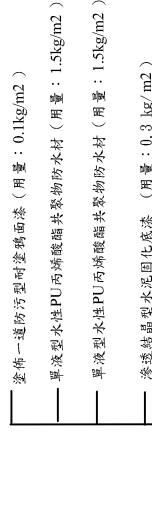 塗佈一道防污型耐塗鴉面漆（用量：0.1kg/m2）
單液型水性PU丙烯酸酯共聚物防水材（用量：1.5kg/m2）
單液型水性PU丙烯酸酯共聚物防水材（用量：1.5kg/m2）
滲透結晶型水泥固化底漆 （用量：0.3 kg/m2）